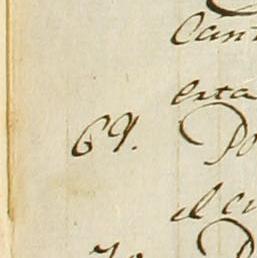 Cant
esta
69. Po
el cu
70. D